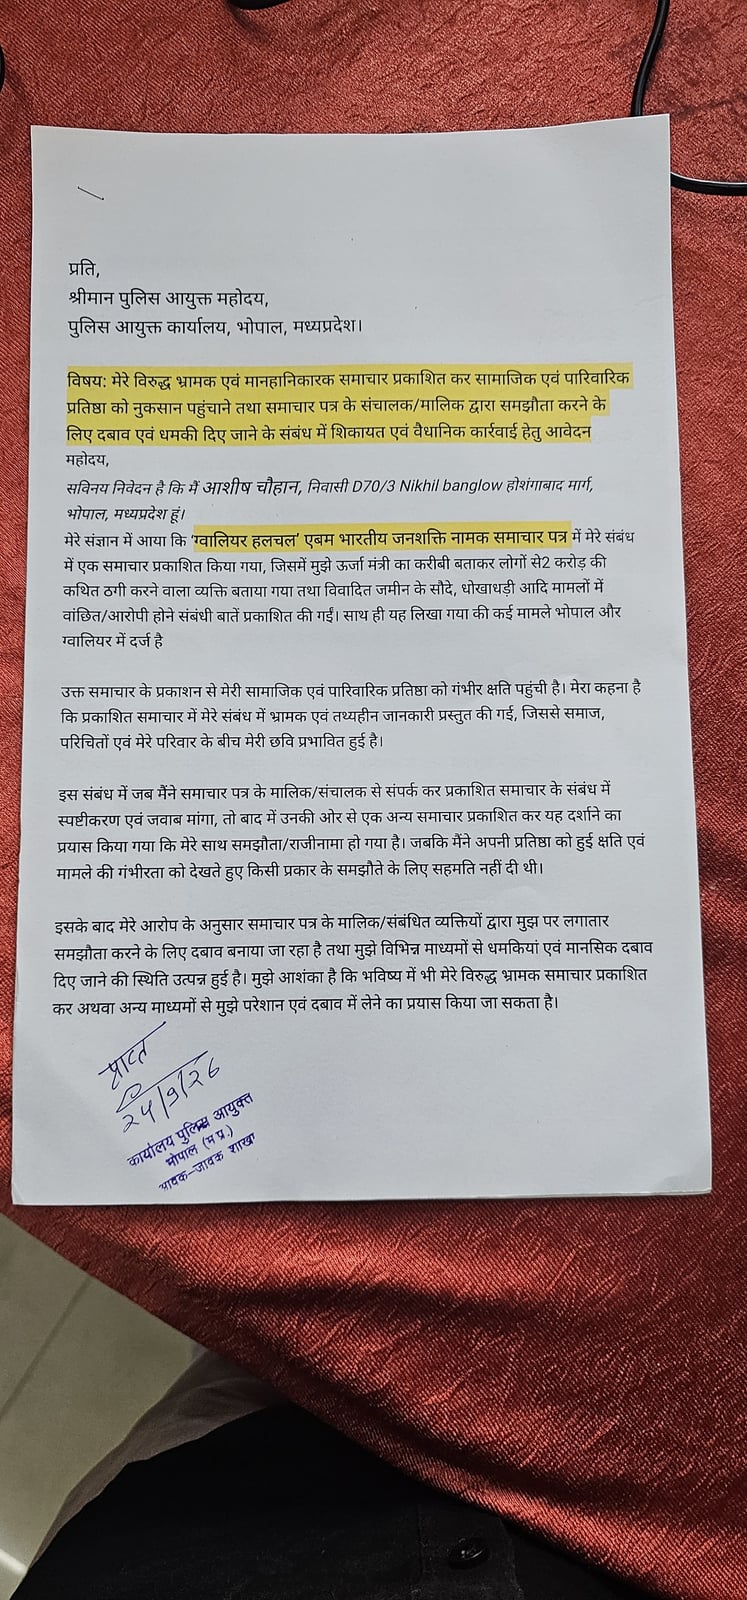 प्रति,
श्रीमान पुलिस आयुक्त महोदय,
पुलिस आयुक्त कार्यालय, भोपाल, मध्यप्रदेश।
विषय: मेरे विरुद्ध भ्रामक एवं मानहानिकारक समाचार प्रकाशित कर सामाजिक एवं पारिवारिक
प्रतिष्ठा को नुकसान पहुंचाने तथा समाचार पत्र के संचालक/मालिक द्वारा समझौता करने के
लिए दबाव एवं धमकी दिए जाने के संबंध में शिकायत एवं वैधानिक कार्रवाई हेतु आवेदन
महोदय,
सविनय निवेदन है कि मैं आशीष चौहान, निवासी D70/3 Nikhil banglow होशंगाबाद मार्ग,
भोपाल, मध्यप्रदेश हूं।
मेरे संज्ञान में आया कि 'ग्वालियर हलचल' एबम भारतीय जनशक्ति नामक समाचार पत्र में मेरे संबंध
में एक समाचार प्रकाशित किया गया, जिसमें मुझे ऊर्जा मंत्री का करीबी बताकर लोगों से2 करोड़ की
कथित ठगी करने वाला व्यक्ति बताया गया तथा विवादित जमीन के सौदे, धोखाधड़ी आदि मामलों में
वांछित/आरोपी होने संबंधी बातें प्रकाशित की गईं। साथ ही यह लिखा गया की कई मामले भोपाल और
ग्वालियर में दर्ज है
उक्त समाचार के प्रकाशन से मेरी सामाजिक एवं पारिवारिक प्रतिष्ठा को गंभीर क्षति पहुंची है। मेरा कहना है
कि प्रकाशित समाचार में मेरे संबंध में भ्रामक एवं तथ्यहीन जानकारी प्रस्तुत की गई, जिससे समाज,
परिचितों एवं मेरे परिवार के बीच मेरी छवि प्रभावित हुई है।
इस संबंध में जब मैंने समाचार पत्र के मालिक/संचालक से संपर्क कर प्रकाशित समाचार के संबंध में
स्पष्टीकरण एवं जवाब मांगा, तो बाद में उनकी ओर से एक अन्य समाचार प्रकाशित कर यह दर्शाने का
प्रयास किया गया कि मेरे साथ समझौता/राजीनामा हो गया है। जबकि मैंने अपनी प्रतिष्ठा को हुई क्षति एवं
मामले की गंभीरता को देखते हुए किसी प्रकार के समझौते के लिए सहमति नहीं दी थी।
इसके बाद मेरे आरोप के अनुसार समाचार पत्र के मालिक/संबंधित व्यक्तियों द्वारा मुझ पर लगातार
समझौता करने के लिए दबाव बनाया जा रहा है तथा मुझे विभिन्न माध्यमों से धमकियां एवं मानसिक दबाव
दिए जाने की स्थिति उत्पन्न हुई है। मुझे आशंका है कि भविष्य में भी मेरे विरुद्ध भ्रामक समाचार प्रकाशित
कर अथवा अन्य माध्यमों से मुझे परेशान एवं दबाव में लेने का प्रयास किया जा सकता है।
प्राप्त
कार्यालय पुलिस आयुक्त
भोपाल (म प्र.)
आवक-जावक शाखा